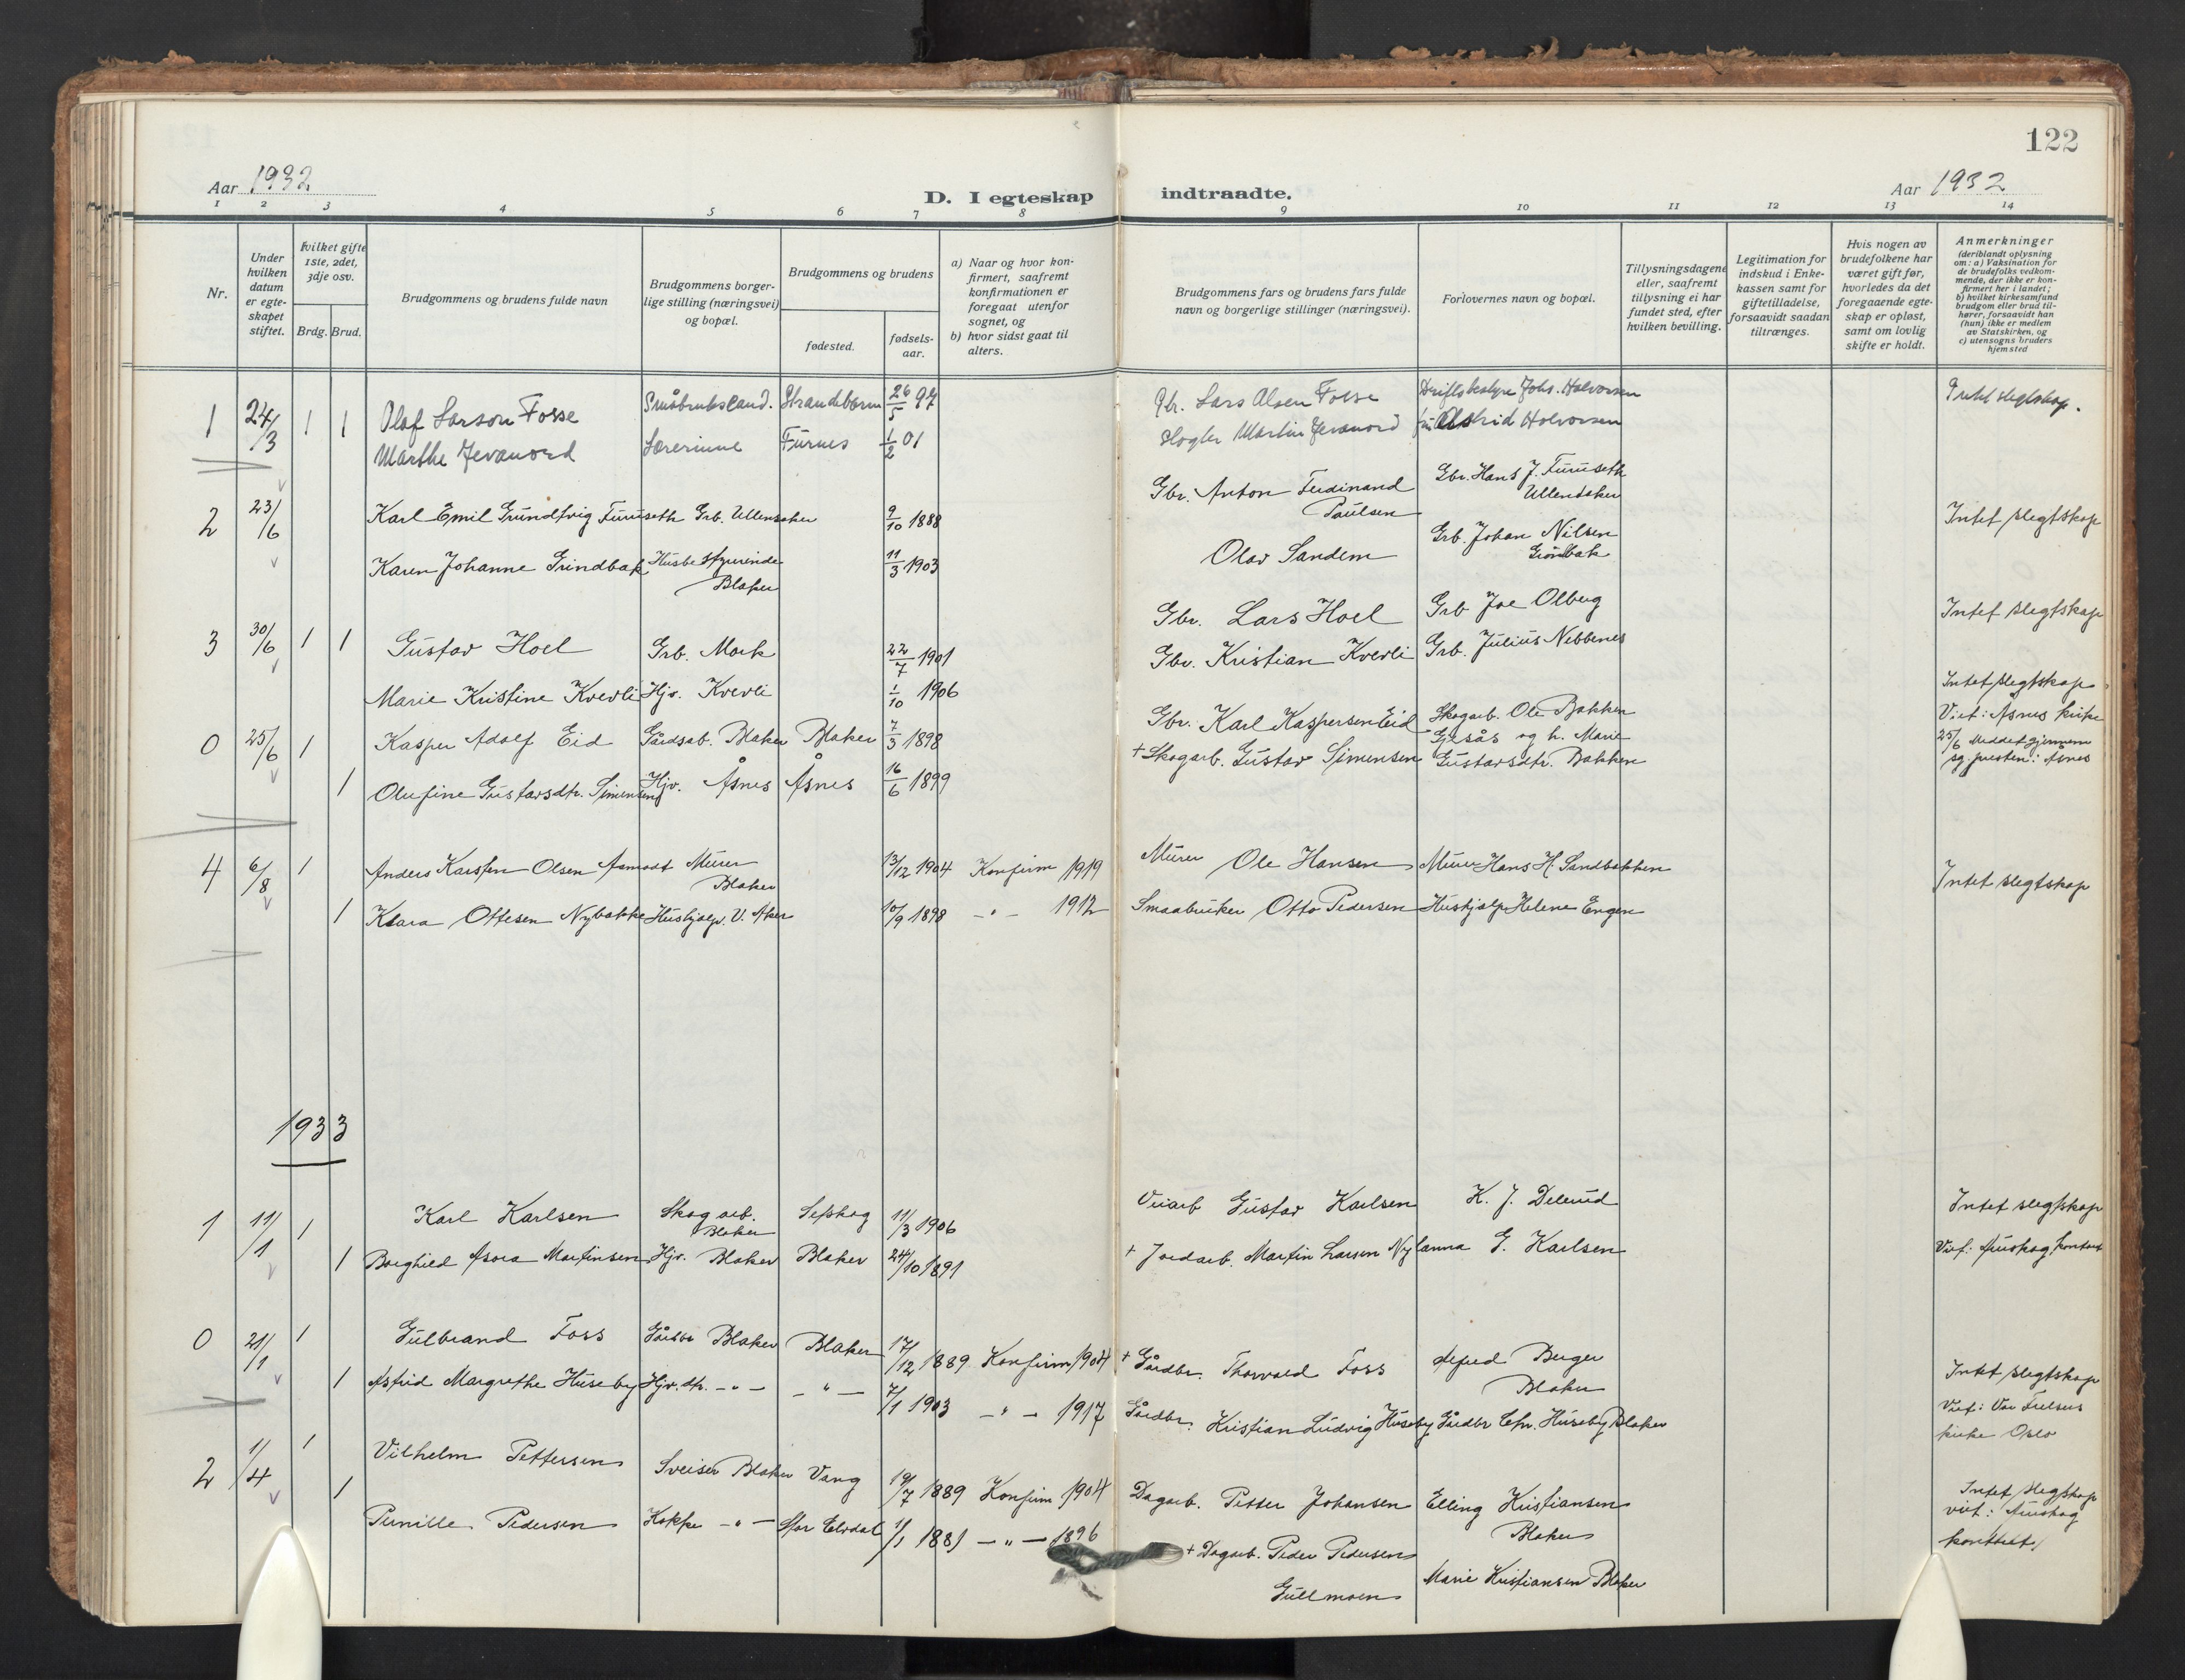 122
Aar 1932
D. I egteskap indtraadte.
Aar 1932
1 2 3 4 5 6 7 8 9 10 11 12 13 14
Nr.
Under hvilken datum er egteskapet stiftet.
hvilket gifte 1ste, 2det, 3dje osv.
Brdg. Brud.
Brudgommens og brudens fulde navn
Brudgommens borgerlige stilling (næringsvei) og bopæl.
Brudgommens og brudens
fødested.
fødselsaar.
a) Naar og hvor konfirmert, saafremt konfirmationen er foregaat utenfor sognet, og
b) hvor sidst gaat til alters.
Brudgommens fars og brudens fars fulde navn og borgerlige stillinger (næringsvei).
Forlovernes navn og bopæl.
Tillysningsdagene eller, saafremt tillysning ei har fundet sted, efter hvilken bevilling.
Legitimation for indskud i Enkekassen samt for giftetilladelse, forsaavidt saadan tiltrænges.
Hvis nogen av brudefolkene har været gift før, hvorledes da det foregaaende egteskap er opløst, samt om lovlig skifte er holdt.
Anmerkninger
(deriblandt oplysning om: a) Vaksination for de brudefolks vedkommende, der ikke er konfirmert her i landet;
b) hvilket kirkesamfund brudgom eller brud tilhører, forsaavidt han (hun) ikke er medlem av Statskirken, og
c) utensogns bruders hjemsted
1 24/3 1 1 Olaf Larson Fosse Strandebarm 26/5 97 Gbr. Lars Olsen Fosse Driftsbestyrer Johs. Halvorsen Intet slegtskap.
Marthe Jevanord Lærerinne Furnes 1/2 01 Martin Jevanord Astrid Halvorsen
2 23/6 Karl Emil Grundtvig Furuseth Grb. Ullensaker 9/10 1888 Gbr. Anton Ferdinand Paulsen Gbr. Hans J. Furuseth Ullensaker Intet slegtskap
Karen Johanne Grindbak Husbestyrerinde Blaker 11/3 1903 Olav Sandem Grb. Johan Nilsen
3 30/6 1 1 Gustav Hoel Grb. Mork 22/7 1901 Gbr. Lars Hoel Grb Joe Olberg Intet slegtskap
Marie Kristine Kverli Hjv. Kverli 1/10 1906 Gbr. Kristian Kverli Grb. Julius Nebbenes
0 25/6 1 Kasper Adolf Eid Gårdsab. Blaker Blaker 7/3 1898 Gbr. Karl Kaspersen Eid Skogarb. Ole Bakken Gjesås og h. Marie Intet slegtskap
1 Olufine Gustavsdtr. Simensen Hjv. Åsnes Åsnes 16/6 1899 + Skogarb. Gustav Simensen Gustavsdtr. Bakken Viet: Åsnes kirke
25/6 Meddelt gjennem
sg. presten i Åsnes
4 6/8 1 Anders Karsten Olsen Aamodt Murer Blaker 13/12 1904 Konfirm 1919 Murer Ole Hansen Murer Hans H. Sandbakken Intet slegtskap
1 Klara Ottesen Nybakke Hushjelp. V. Aker 10/9 1898 - " - 1912 Smaabruker Otto Pedersen Hushjelp Helene Engen
1933
1 11/1 1 Karl Karlsen Skogarb. Blaker Setskog 11/3 1906 Gustav Karlsen K. J. Delerud Intet slegtskap
1 Borghild Asora Martinsen Hjv. Blaker Blaker 24/10 1891 + Jordarb. Martin Larsen Anna G. Karlsen Viet: Aurskog kontor
0 21/1 1 Gulbrand Foss Gårdbr Blaker Blaker 17/12 1889 Konfirm 1904 + Gårdbr. Thorvald Foss Alfred Berger Blaker Intet slegtskap
1 Astrid Margrethe Huseby Hjv. dtr. - " - - " - 7/1 1903 - " - 1917 Gårdbr. Kristian Ludvig Huseby Gårdbr Chr. Huseby Blaker Viet: Vor Frelsers
kirke Oslo
2 1/4 1 Vilhelm Pettersen Sveiser Blaker Vang 19/7 1889 Konfirm 1904 Dagarb. Petter Johansen Elling Kristiansen Blaker Intet slegtskap
1 Pernille Pedersen Kokke - " - Stor Elvdal 1/1 1881 - " - 1896 + Dagarb. Peder Pedersen Gullmoen Marie Kristiansen Blaker viet: Aurskog
kontoret